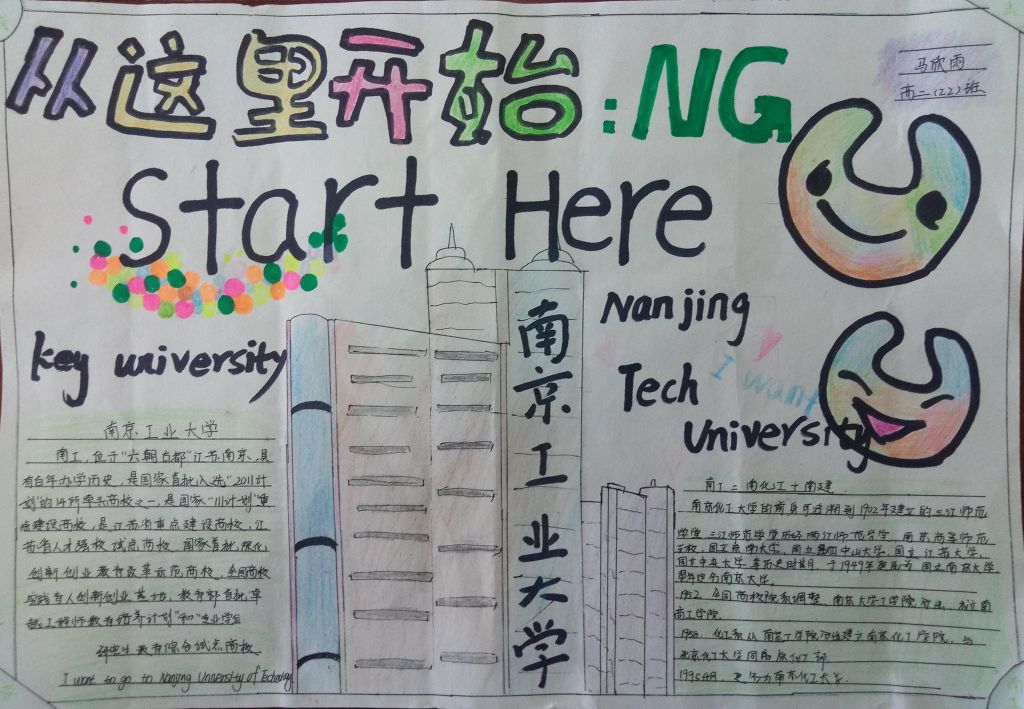 从这里开始:NG
马欣雨
高二(22)班
Start Here
Key university
Nanjing
Tech
University
I want
南京工业大学
南京工业大学
南工,位于"六朝古都"江苏南京,具
有百年办学历史,是国家首批入选"2011计
划"的14所牵头高校之一,是国家"111计划"重
点建设高校,是江苏省重点建设高校,江
苏省人才强校试点高校,国家首批深化
创新创业教育改革示范高校,全国高校
实践育人创新创业基地,教育部首批卓
越工程师教育培养计划"和"专业学位
研究生教育综合试点高校
I want to go to Nanjing University of Technology
南工=南化工+南建
南京化工大学的前身可追溯到1902年建立的三江师范
学堂,三江师范学堂历经两江师范学堂,南京高等师范
学校,国立东南大学,国立第四中山大学,国立江苏大学,
国立中央大学等历史时期,于1949年更名为国立南京大学
翌年径称南京大学。
1952,全国高校院系调整,南京大学工学院分出,成立南
京工学院
1958,化工系从南京工学院分出建立南京化工学院,与
北京化大学同属原化工部.
1995.4月,更名为南京化工大学.